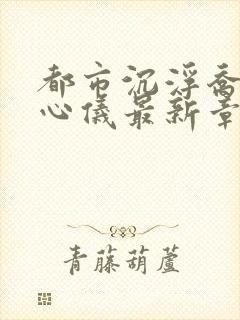 都市沉浮乔
心儀最新章
青藤葫蘆